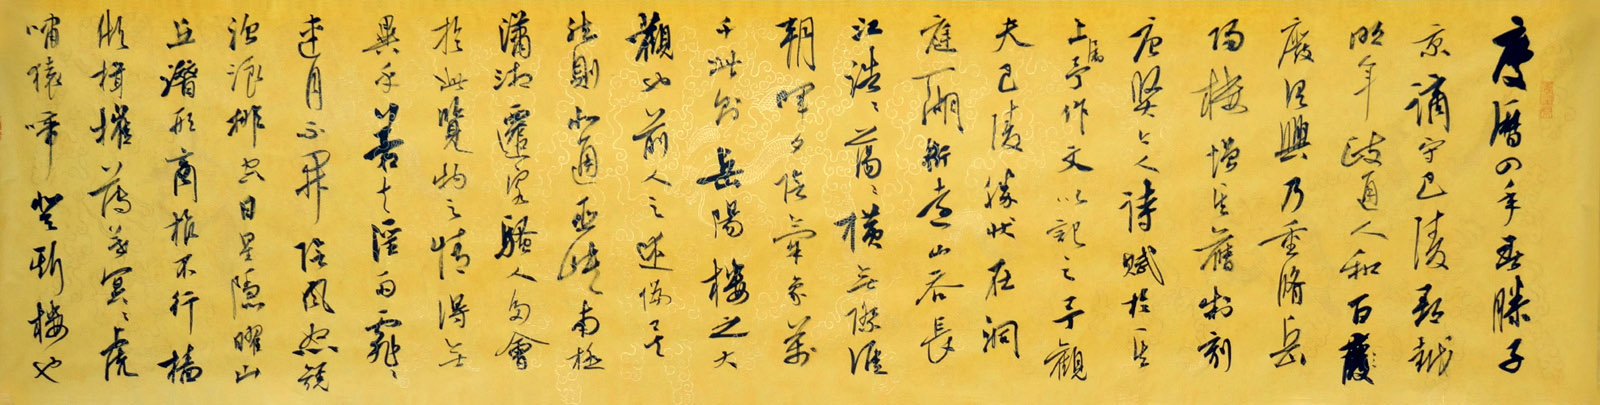 慶曆四年春滕子
京謫守巴陵郡越
明年政通人和百
廢具興乃重脩岳
陽樓增其舊制刻
唐賢今人詩賦於其
上屬予作文以記之予觀
夫巴陵勝狀在洞
庭一湖銜遠山吞長
江浩〻蕩〻橫無際涯
朝暉夕陰氣象萬
千此則岳陽樓之大
觀也前人之述備矣
然則北通巫峽南極
瀟湘遷客騷人多會
於此覽物之情得無
異乎若夫淫雨霏〻
連月不開陰風怒號
濁浪排空日星隱曜山
丘潛形商旅不行檣
傾楫摧薄暮冥〻虎
嘯猿啼登斯樓也